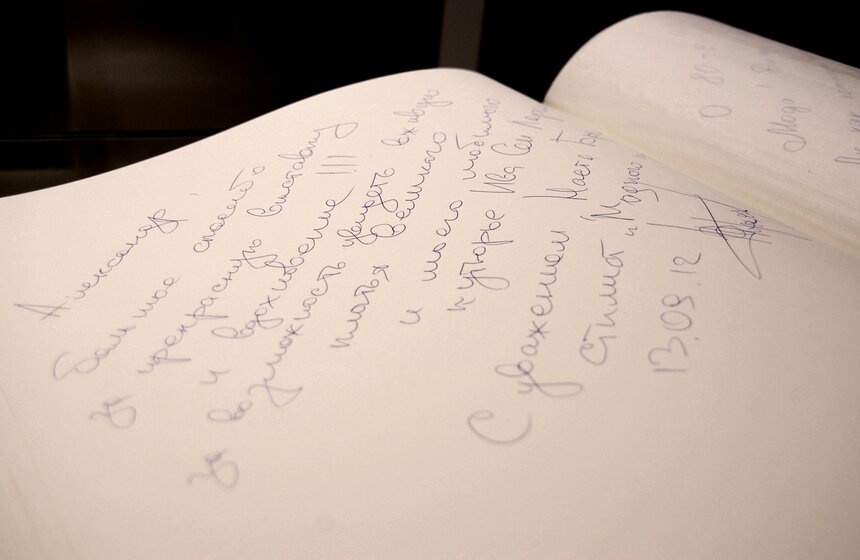 Александр
Большое спасибо
за прекрасную выставку
и вдохновение !!!
За возможность увидеть вживую
платья великого
и моего любимого
кутюрье Ива Сен
С уважением Настя
Стилист и Модного
13.09.12
О 80-е
Мода